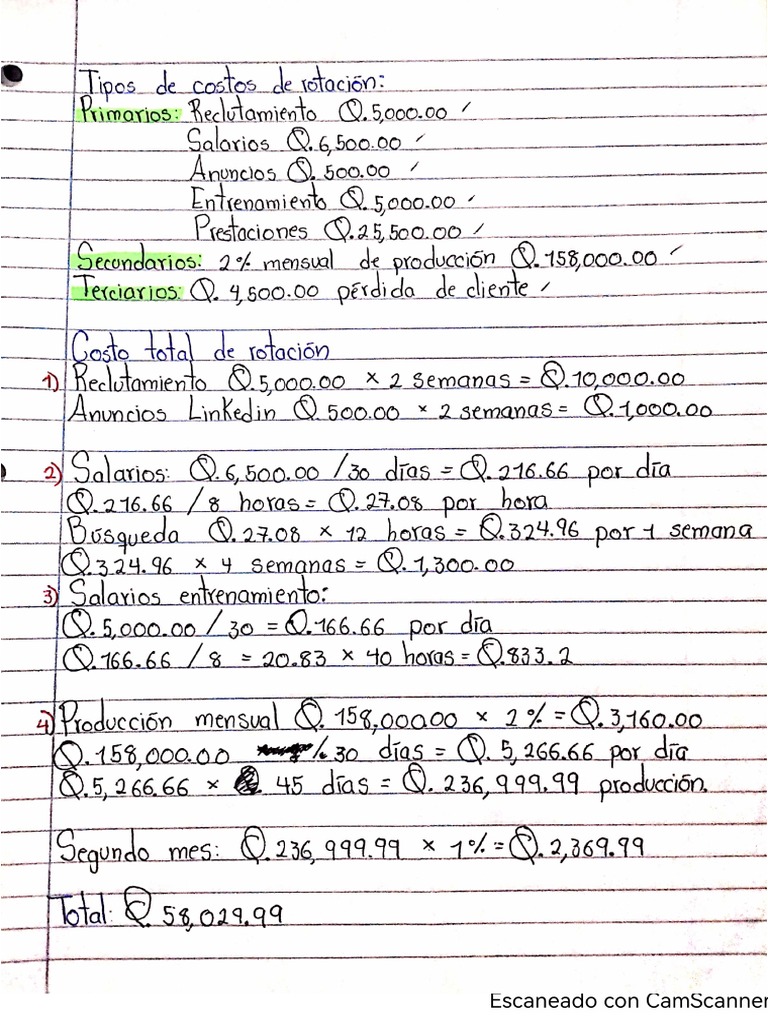 Tipos de costos de rotación:
Primarios: Reclutamiento Q.5,000.00
Salarios Q.6,500.00
Anuncios Q.500.00
Entrenamiento Q.5,000.00
Prestaciones Q.25,500.00
Secundarios: 2% mensual de producción Q.158,000.00
Terciarios: Q.4,500.00 pérdida de cliente
Costo total de rotación
1) Reclutamiento Q.5,000.00 × 2 semanas = Q.10,000.00
Anuncios Linkedin Q.500.00 × 2 semanas = Q.1,000.00
2) Salarios: Q.6,500.00 /30 días = Q.216.66 por día
Q.216.66 / 8 horas = Q.27.08 por hora
Búsqueda Q.27.08 × 12 horas = Q.324.96 por 1 semana
Q.324.96 × 4 semanas = Q.1,300.00
3) Salarios entrenamiento:
Q.5,000.00 / 30 = Q.166.66 por día
Q.166.66 / 8 = 20.83 × 40 horas = Q.833.2
4) Producción mensual Q.158,000.00 × 2% = Q.3,160.00
Q.158,000.00 /. 30 días = Q.5,266.66 por día
Q.5,266.66 × 45 días = Q.236,999.99 producción.
Segundo mes: Q.236,999.99 × 1% = Q.2,369.99
Total: Q.58,029.99
Escaneado con CamScanner